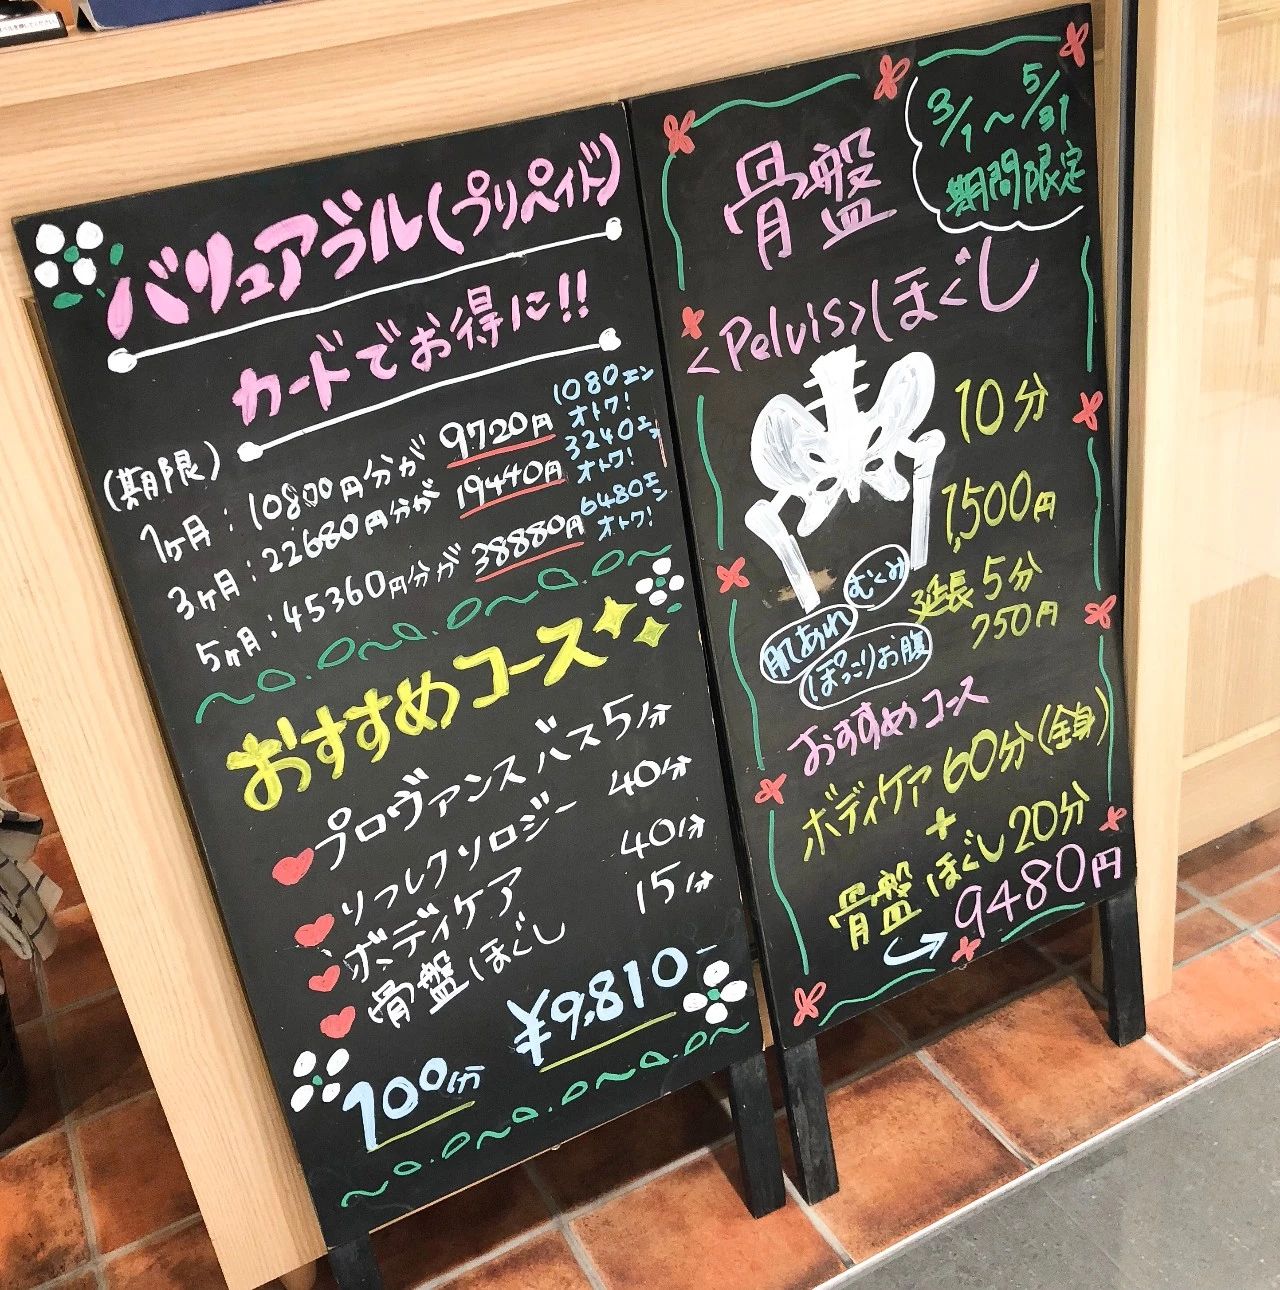 バリュアブル(プリペイド)
カードでお得に!!
(期限)
1ヶ月:10800円分が 9720円 1080エン オトク!
3ヶ月:22680円分が 19440円 3240エン オトク!
5ヶ月:45360円分が 38880円 6480エン オトク!
おすすめコース
プロヴァンスバス 5分
リフレクソロジー 40分
ボディケア 40分
骨盤ほぐし 15分
100分 ¥9,810-
3/1〜5/31
期間限定
骨盤
<Pelvis>ほぐし
10分
1,500円
延長5分
750円
むくみ
肌あれ
ぽっこりお腹
おすすめコース
ボディケア60分(全身)
+
骨盤ほぐし20分
9480円